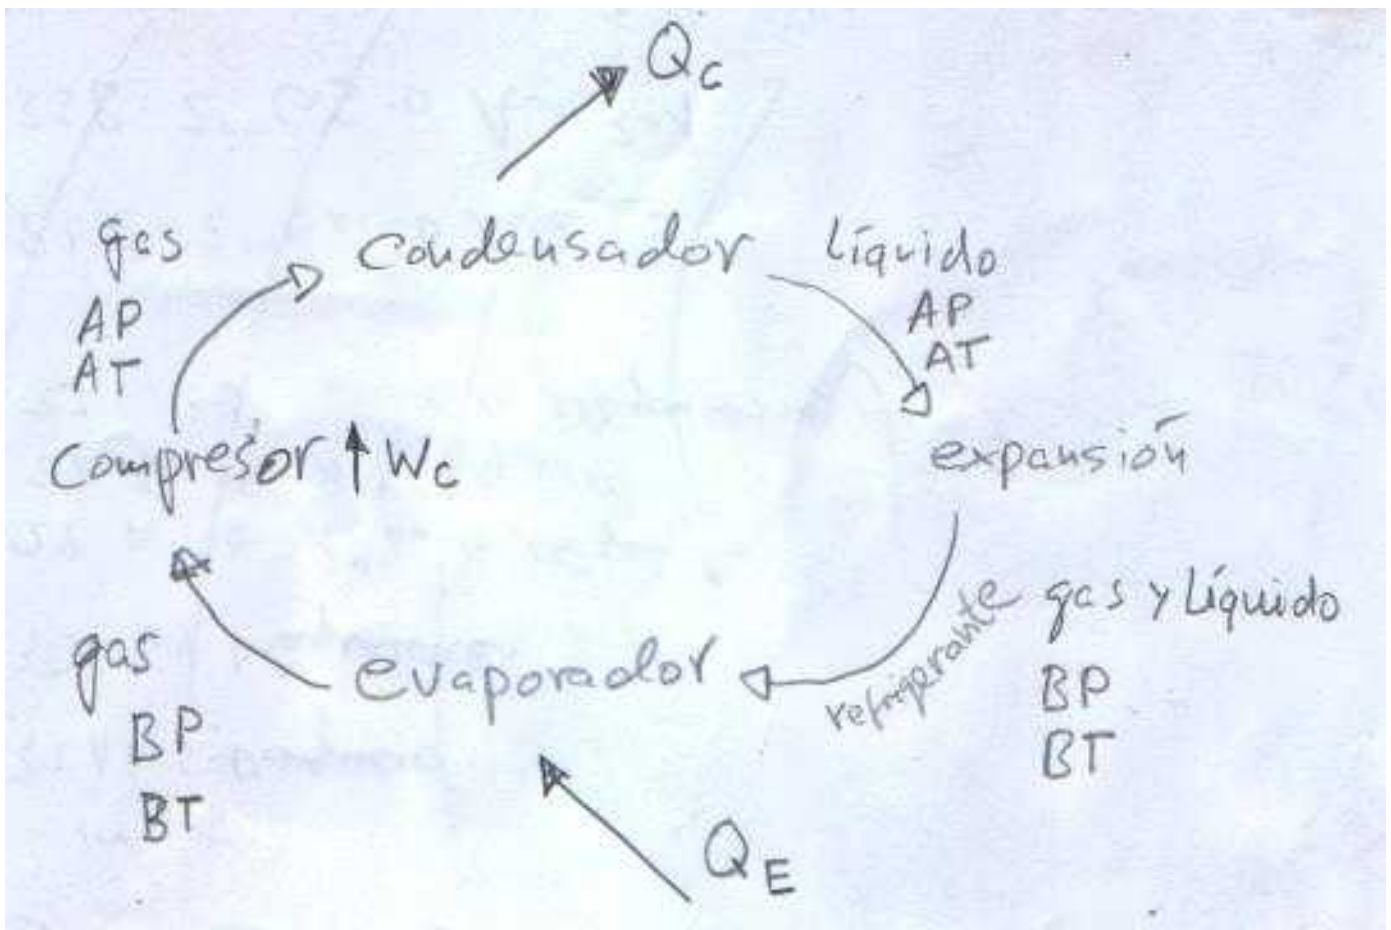 Qc
gas
AP
AT
Condensador
Líquido
AP
AT
Compresor
Wc
expansión
refrigerante
gas y Líquido
BP
BT
evaporador
gas
BP
BT
QE